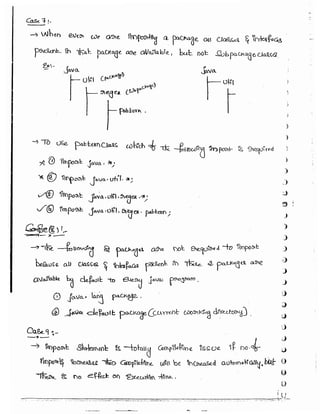 Case 7 :-
→ When ever we are importing a package all classes & Interfaces
present in that package are available, but not subpackage classes
Ex:- java java
util (package) util
regex (subpackage)
pattern.
→ To use pattern class which import is required
× ① import java.*;
× ② import java.util.*;
✓③ import java.util.regex.*;
✓④ import java.util.regex.pattern;
Case 8 :-
→ The following packages are not required to import
because all classes & interfaces present in these 2 packages are
available by default to every java program.
① java.lang package.
② default package (current working directory).
Case 9 :-
→ import statement is totally compiletime issue if no. of
imports increases then compiletime will be increased automatically, but
There is no effect on Execution time.